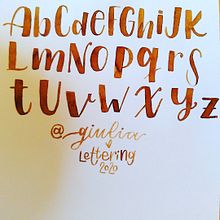 AbCdefGhiJK
LmNOpqrs
tUvwXyz
@giulia
Lettering
2020